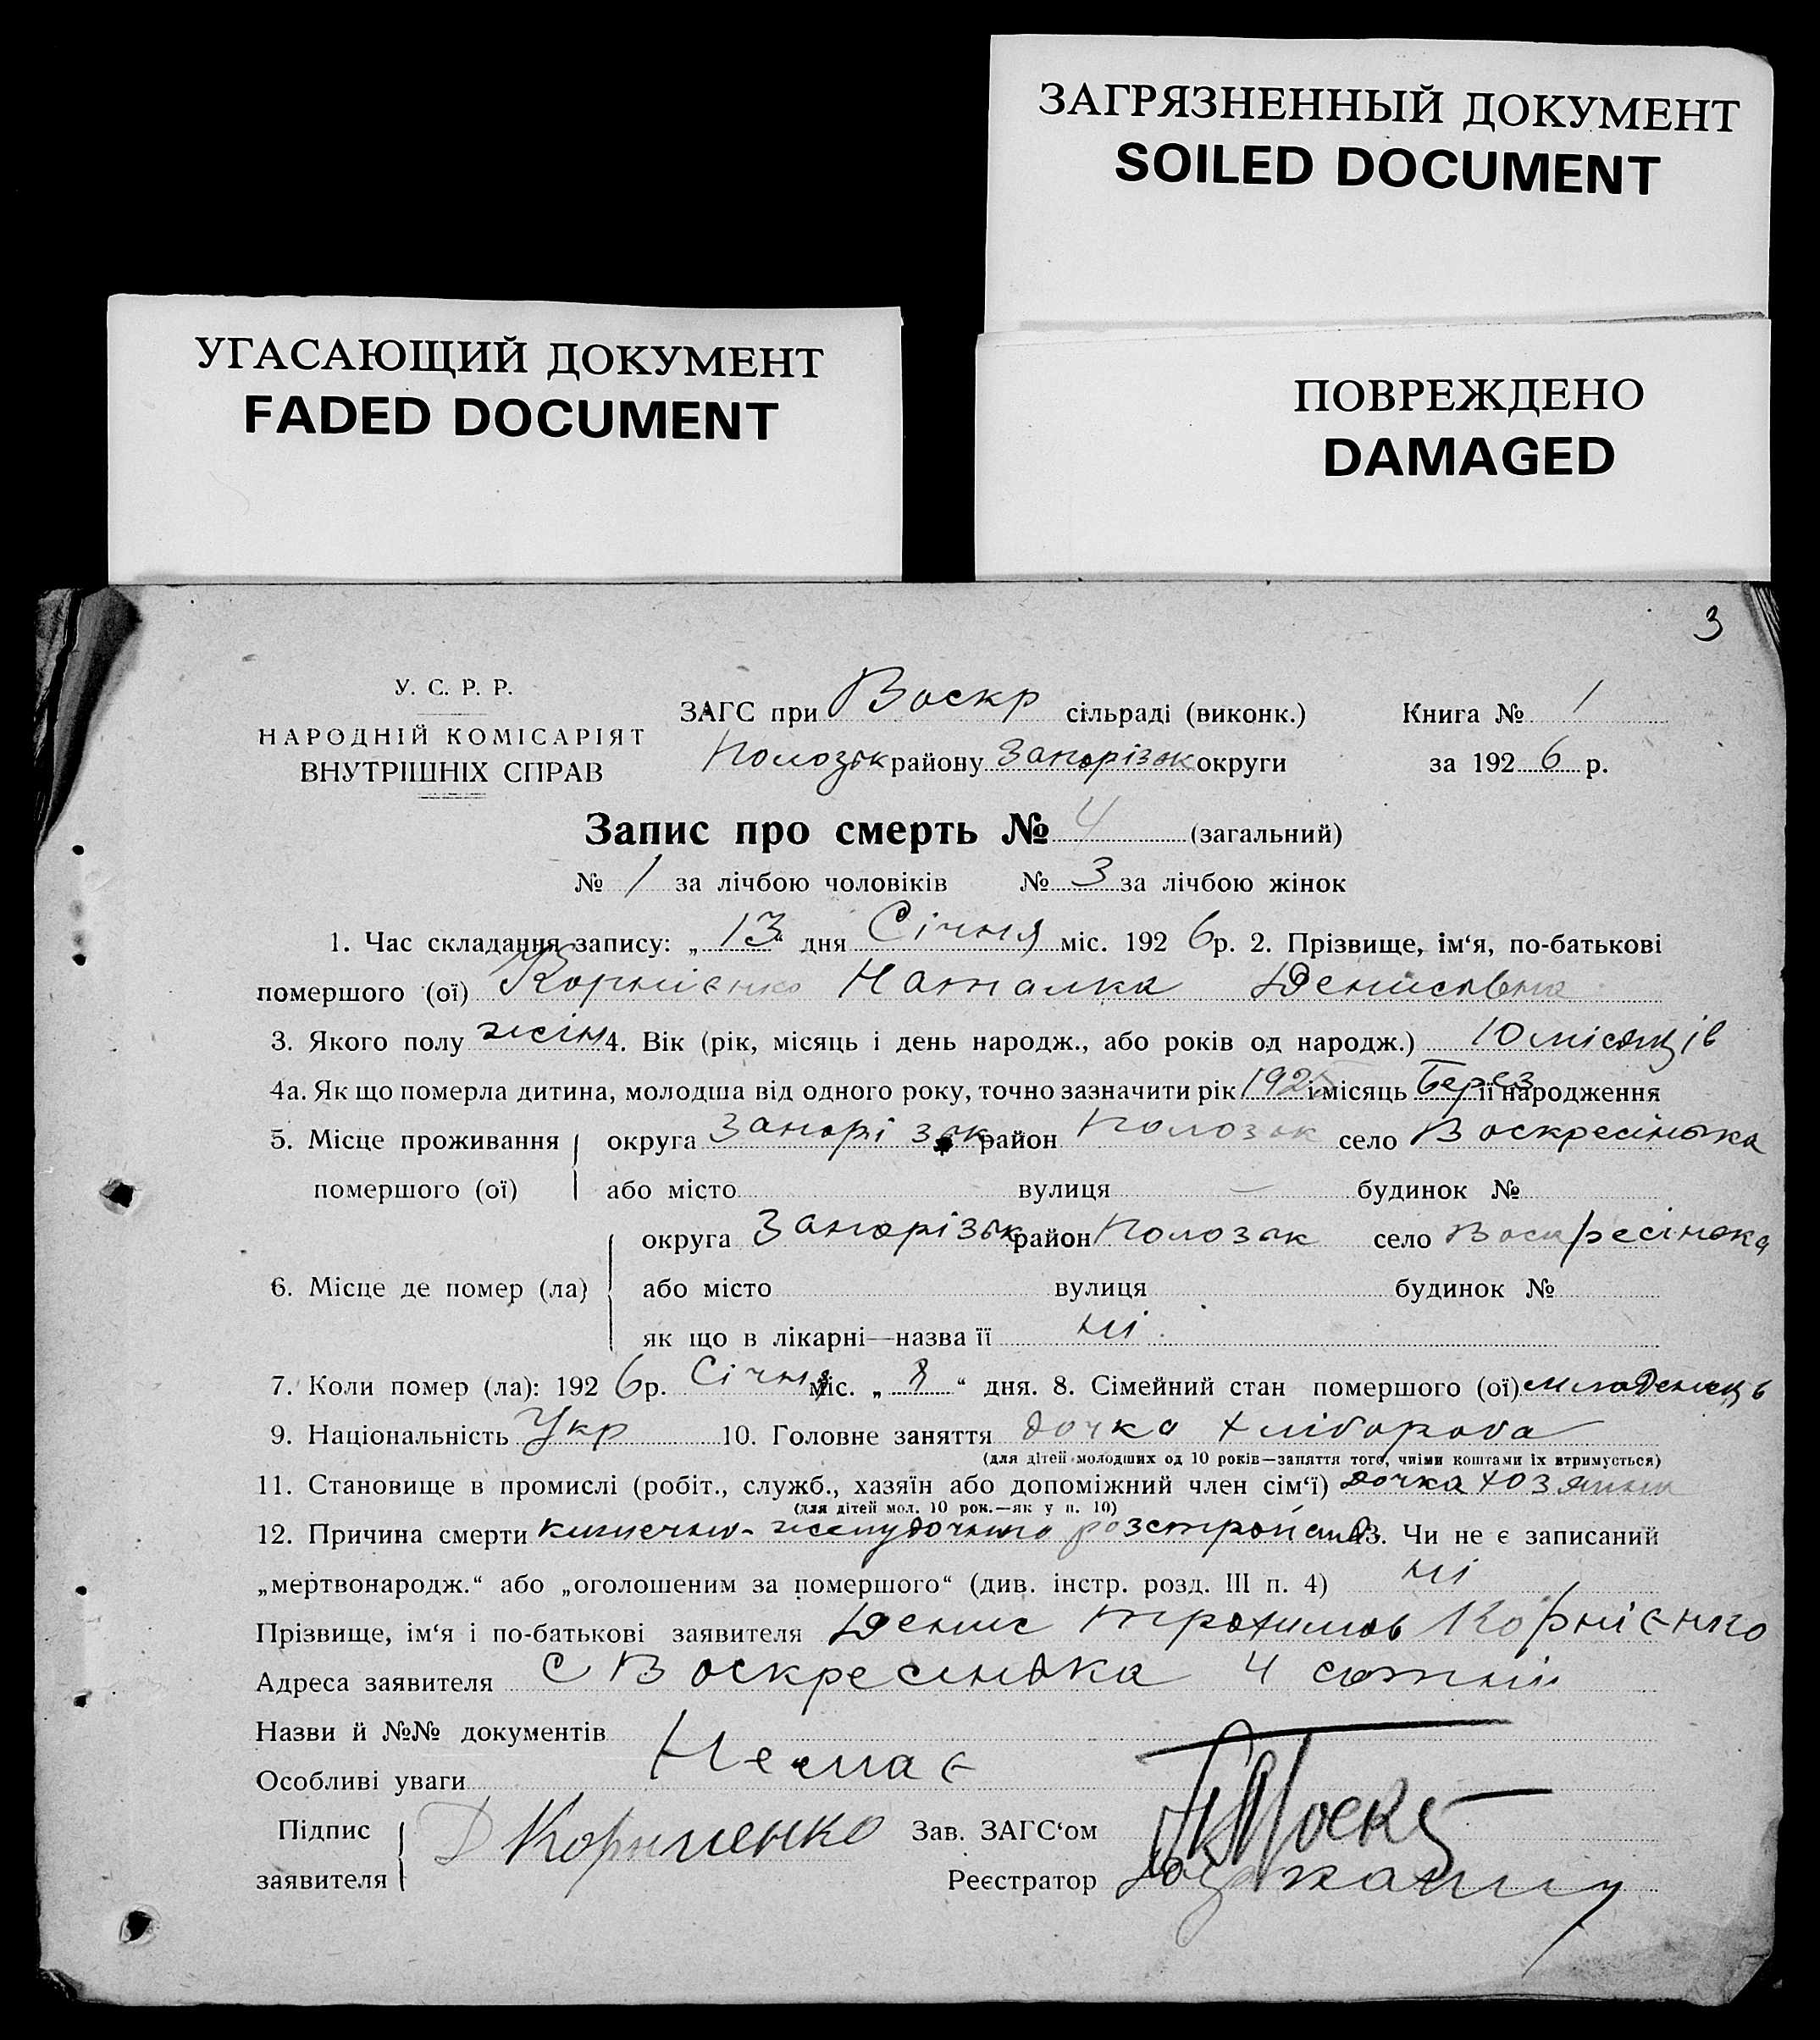 ЗАГРЯЗНЕННЫЙ ДОКУМЕНТ
SOILED DOCUMENT
УГАСАЮЩИЙ ДОКУМЕНТ
FADED DOCUMENT
ПОВРЕЖДЕНО
DAMAGED
3
У. С. Р. Р.
НАРОДНІЙ КОМІСАРІЯТ
ВНУТРІШНІХ СПРАВ
ЗАГС при Воскр сільраді (виконк.) Книга № 1
Полозьк району Запорізьк округи за 1926 р.
Запис про смерть № 4 (загальний)
№ 1 за лічбою чоловіків № 3 за лічбою жінок
1. Час складання запису: „13“ дня Січня міс. 1926 р. 2. Прізвище, ім‘я, по-батькові
помершого (ої) Корнієнко Наталка Денисовна
3. Якого полу жін 4. Вік (рік, місяць і день народж., або років од народж.) 10 місяців
4а. Як що померла дитина, молодша від одного року, точно зазначити рік 1925 і місяць Берез її народження
5. Місце проживання округа Запорізьк район Полозьк село Воскресінька
помершого (ої) або місто вулиця — будинок №
округа Запорізьк район Полозьк село Воскресінька
6. Місце де помер (ла) або місто вулиця будинок №
як що в лікарні—назва її ні
7. Коли помер (ла): 1926 р. Січня міс. „8“ дня. 8. Сімейний стан помершого (ої) младенець
9. Національність Укр 10. Головне заняття дочка хлібороба
(для дітей молодших од 10 років—заняття того, чиїми коштами їх втримується)
11. Становище в промислі (робіт., служб., хазяїн або допоміжний член сім‘ї) дочка хозяина
(для дітей мол. 10 рок.—як у п. 10)
12. Причина смерти кишечно-желудочного розстройства 13. Чи не є записаний
„мертвонародж.“ або „оголошеним за помершого“ (див. інстр. розд. III п. 4) ні
Прізвище, ім‘я і по-батькові заявителя Денис Трохимов Корнієнко
Адреса заявителя С Воскресінька 4 сотні
Назви й №№ документів
Немає
Особливі уваги
Підпис заявителя Д Корниенко Зав. ЗАГС‘ом
Реєстратор